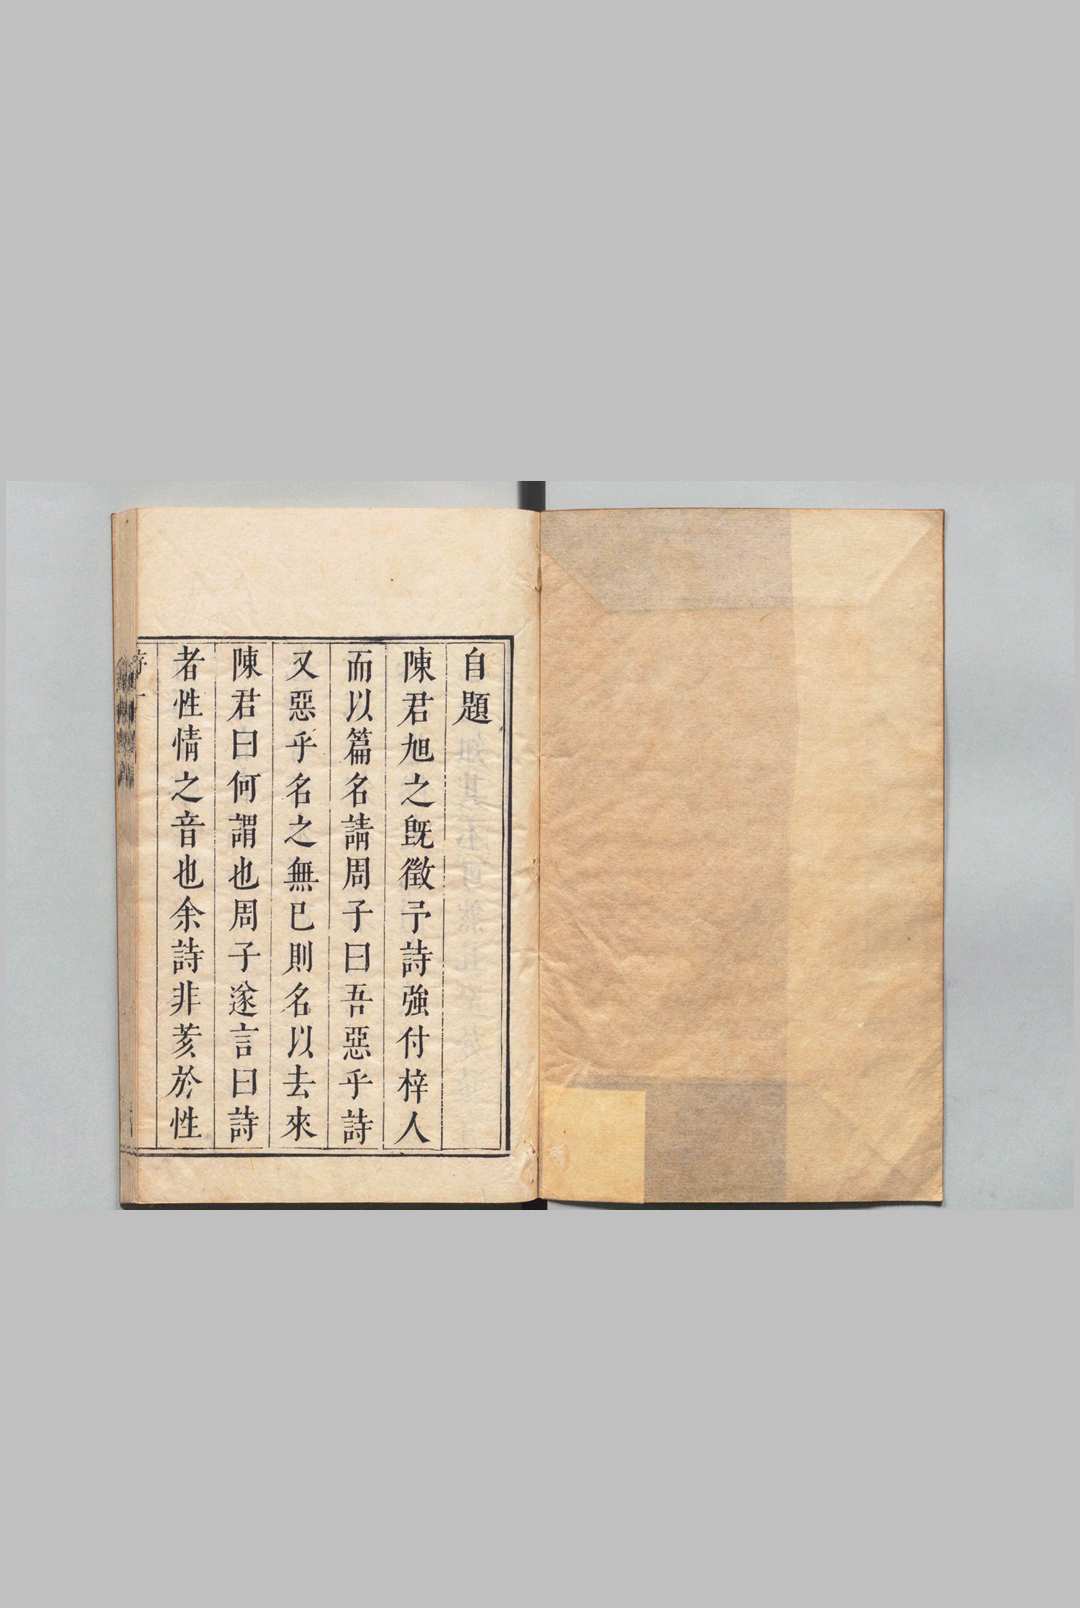 自題
陳君旭之旣徵予詩強付梓人
而以篇名請周子曰吾惡乎詩
又惡乎名之無已則名以去來
陳君曰何謂也周子遂言曰詩
者性情之音也余詩非亥於性
序一